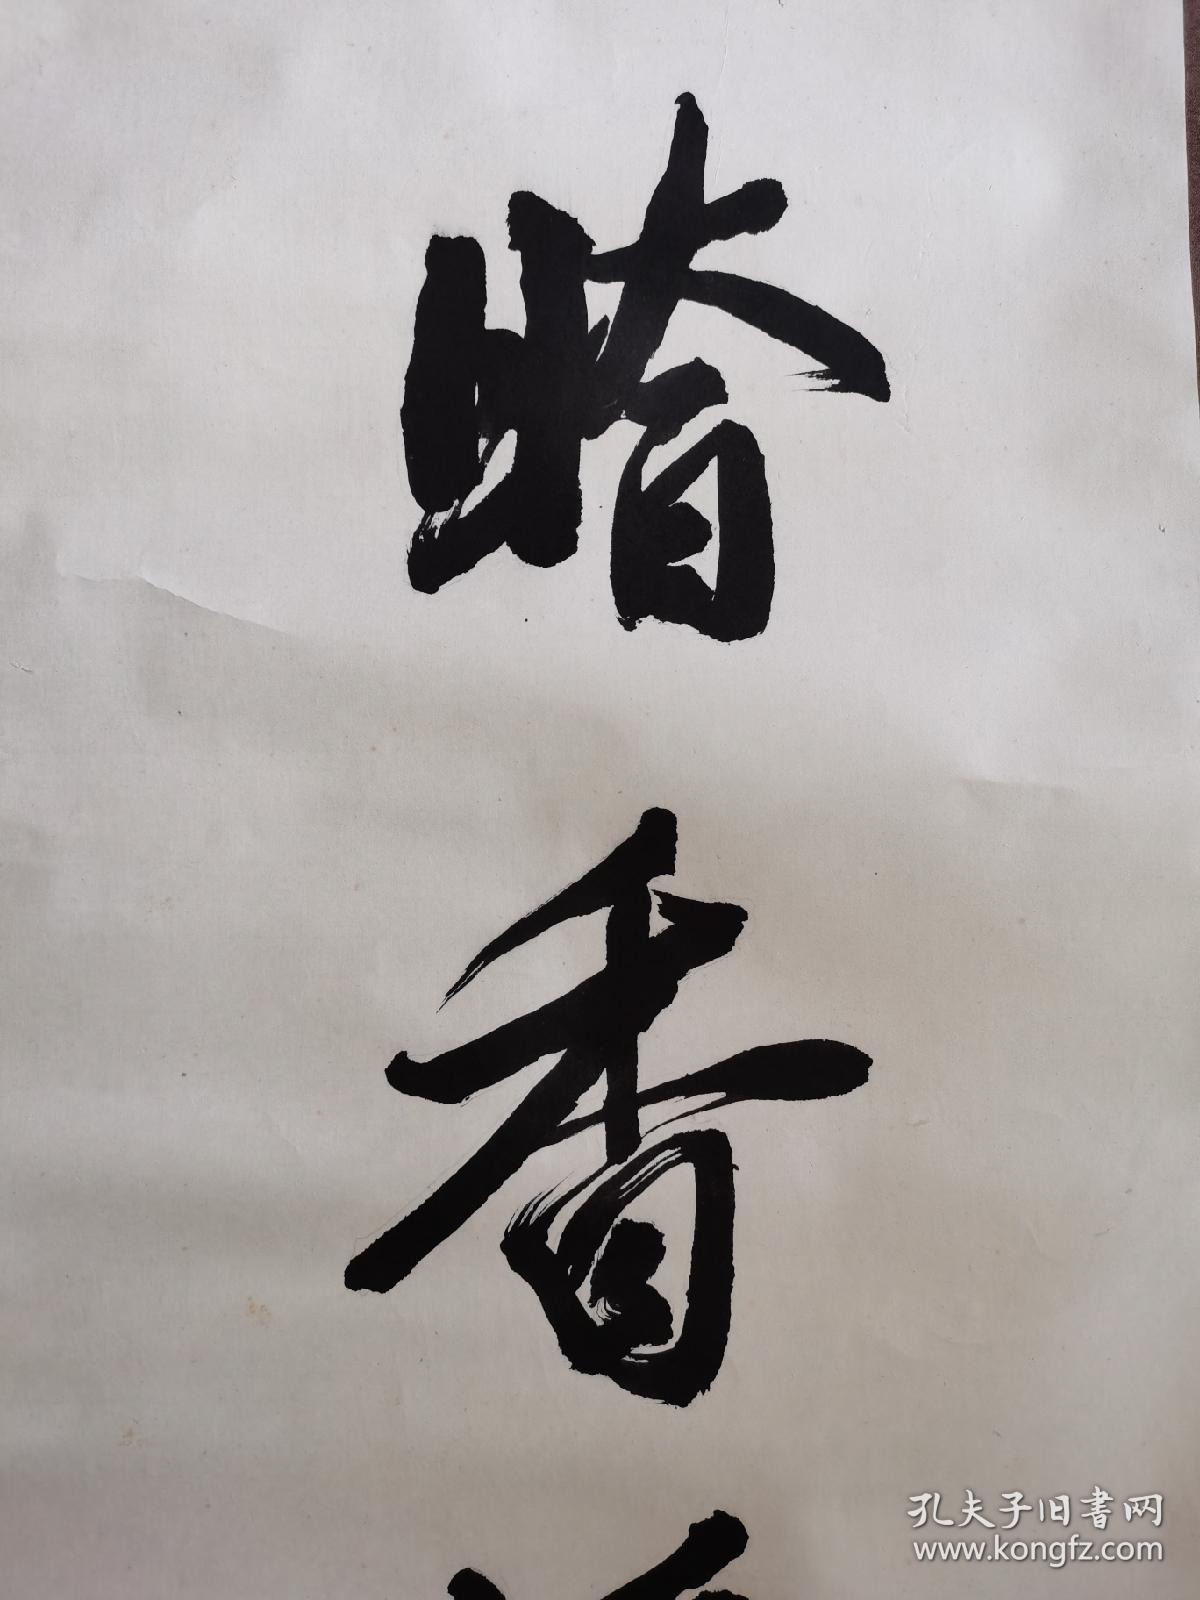 暗
香
孔夫子旧書网
www.kongfz.com